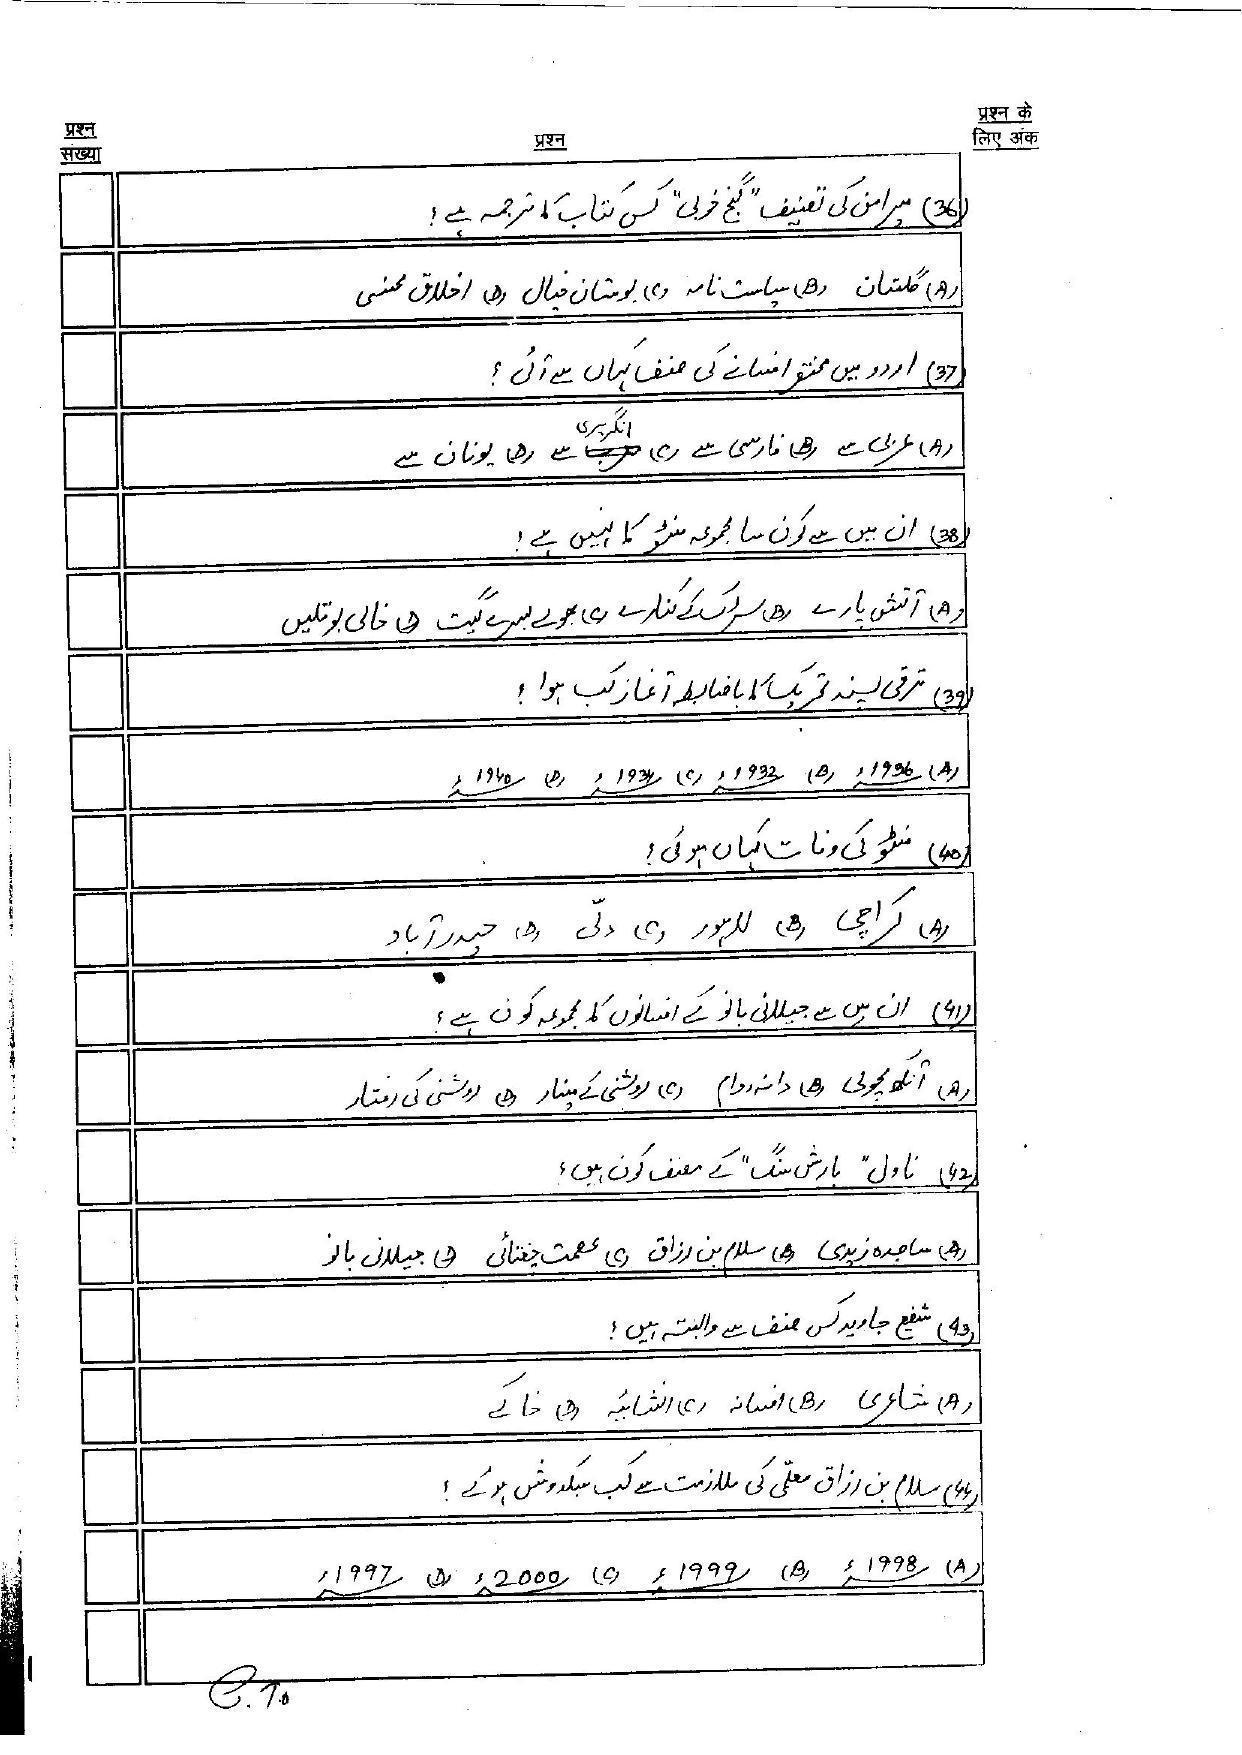 प्रश्न संख्या
प्रश्न
प्रश्न के लिए अंक
(36) میرامن کی تصنیف "گنج خوبی" کس کتاب کا ترجمہ ہے؟
(A) گلستان (B) سیاست نامہ (C) بوستان خیال (D) اخلاق محسنی
(37) اردو میں مختصر افسانے کی صنف کہاں سے آئی؟
(A) عربی سے (B) فارسی سے (C) انگریزی سے (D) یونان سے
(38) ان میں سے کون سا مجموعہ منٹو کا نہیں ہے؟
(A) آتش پارے (B) سڑک کے کنارے (C) بھولے بسرے گیت (D) خالی بوتلیں
(39) ترقی پسند تحریک کا باضابطہ آغاز کب ہوا؟
(A) 1936ء (B) 1932ء (C) 1934ء (D) 1940ء
(40) منٹو کی وفات کہاں ہوئی؟
(A) کراچی (B) لاہور (C) دلّی (D) حیدرآباد
(41) ان میں سے جیلانی بانو کے افسانوں کا مجموعہ کون ہے؟
(A) آنکھ مچولی (B) دانہ دام (C) روشنی کے مینار (D) روشنی کی رفتار
(42) ناول "بارش سنگ" کے مصنف کون ہیں؟
(A) ساجدہ زیدی (B) سلام بن رزاق (C) عصمت چغتائی (D) جیلانی بانو
(43) شفیع جاوید کس صنف سے وابستہ ہیں؟
(A) شاعری (B) افسانہ (C) انشائیہ (D) خاکے
(44) سلام بن رزاق معلّمی کی ملازمت سے کب سبکدوش ہوئے؟
(A) 1998ء (B) 1999ء (C) 2000ء (D) 1997ء